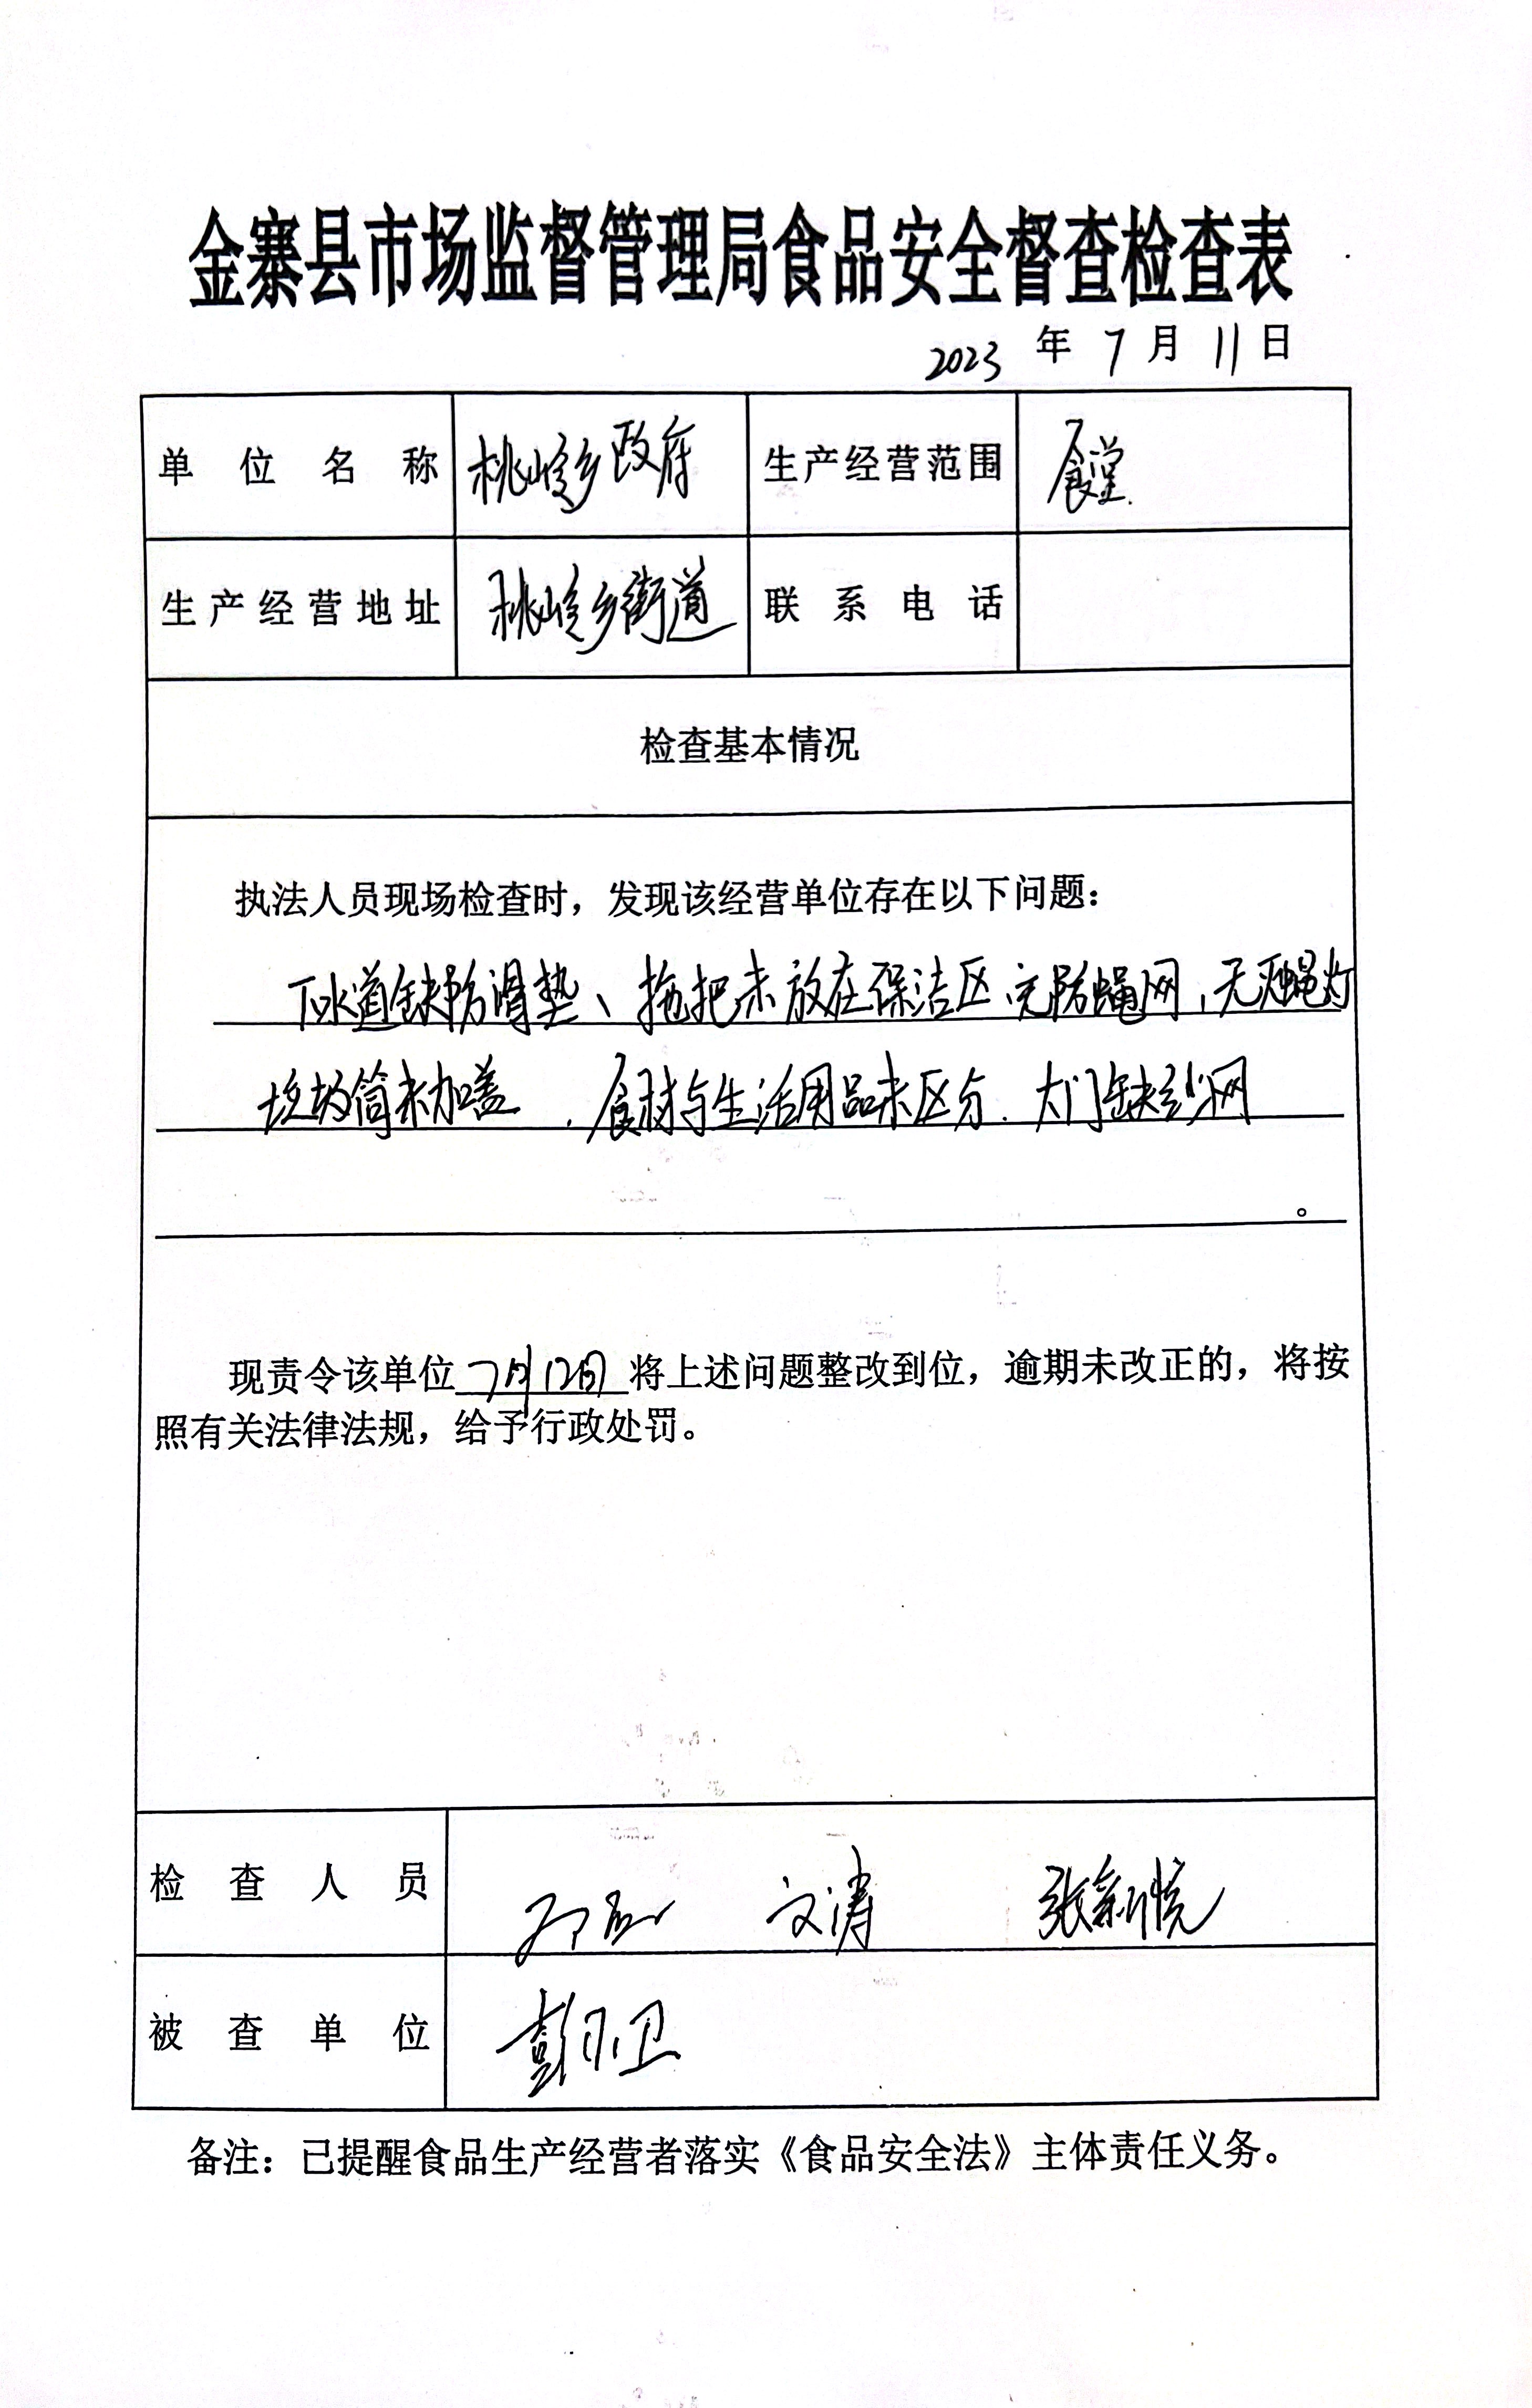 金寨县市场监督管理局食品安全督查检查表
2023 年 7 月 11 日
单位名称 桃岭乡政府 生产经营范围 食堂.
生产经营地址 桃岭乡街道 联系电话
检查基本情况
执法人员现场检查时，发现该经营单位存在以下问题：
下水道缺防滑垫、拖把未放在保洁区、无防蝇网，无灭蝇灯
垃圾筒未加盖，食材与生活用品未区分、大门缺纱网
。
现责令该单位7月12日将上述问题整改到位，逾期未改正的，将按
照有关法律法规，给予行政处罚。
检查人员 文涛 张新悦
被查单位 彭 卫
备注：已提醒食品生产经营者落实《食品安全法》主体责任义务。